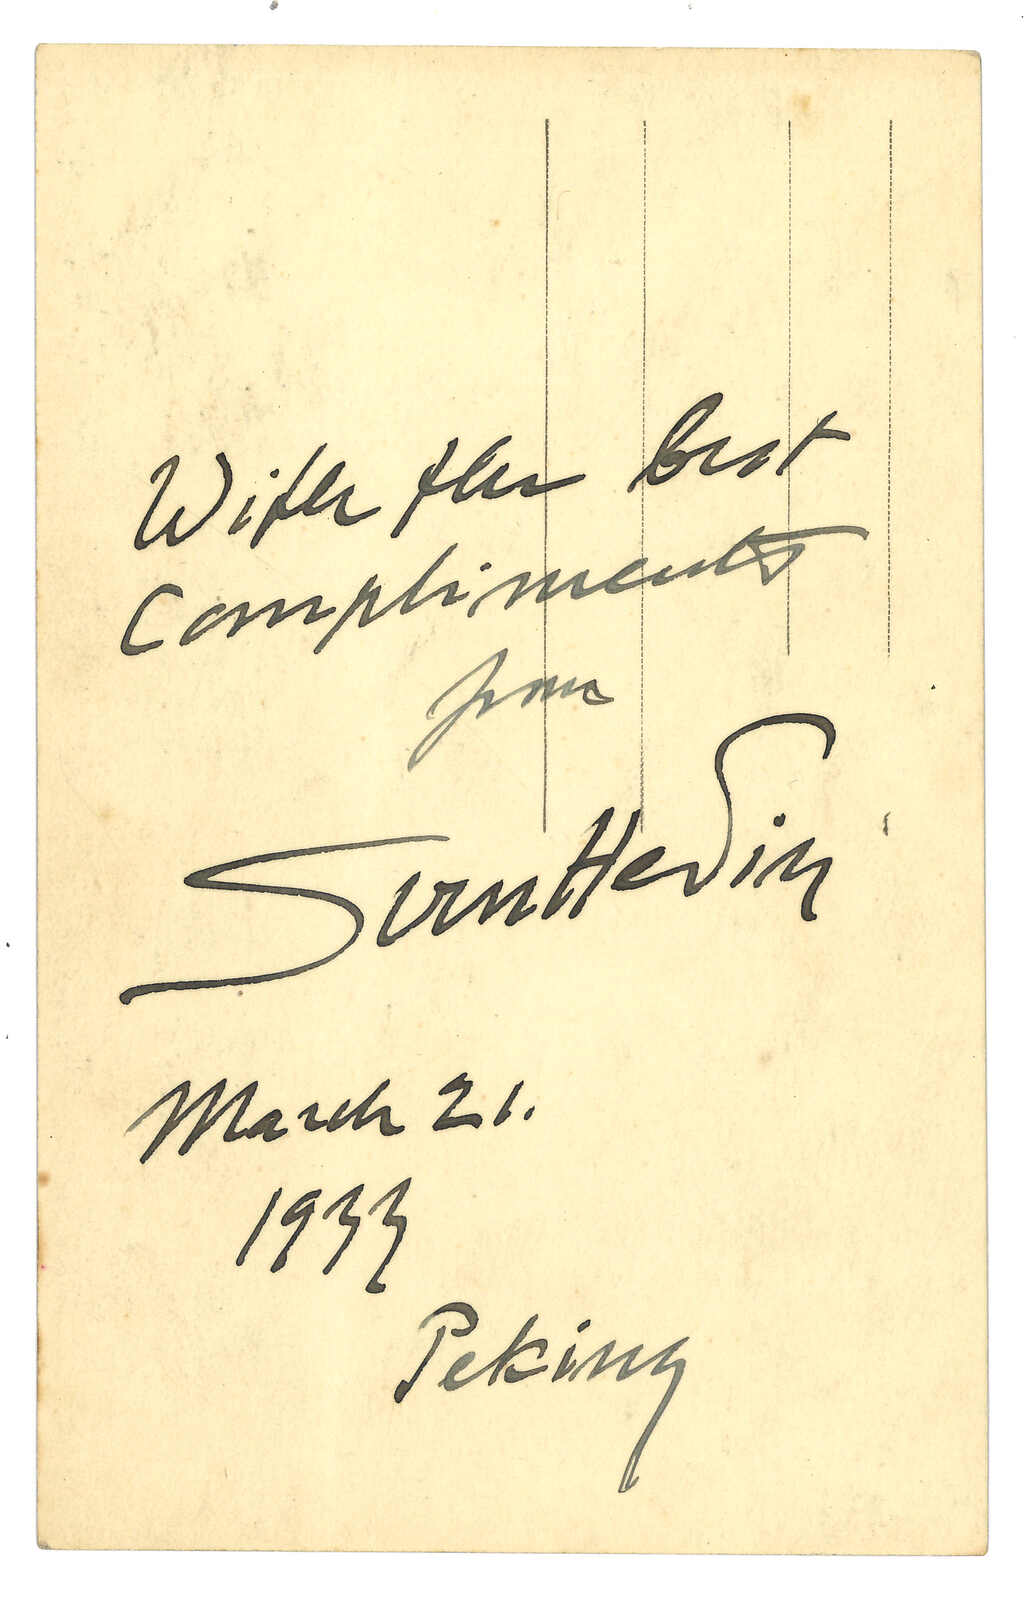 With the best
Compliments
from
Sven Hedin
March 21.
1933
Peking